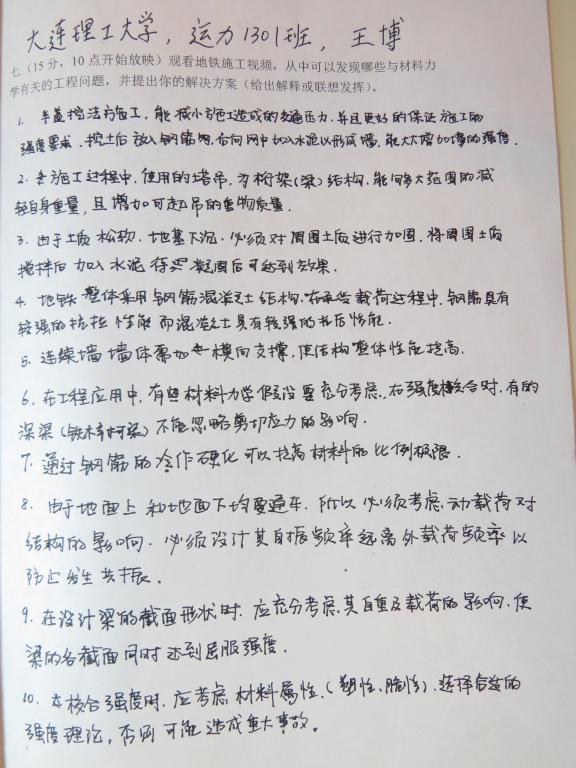 大连理工大学，运力1301班，王博
七.（15分，10点开始放映）观看地铁施工视频，从中可以发现哪些与材料力
学有关的工程问题，并提出你的解决方案（给出解释或联想发挥）。
1. 半盖挖法施工，能减小施工造成的交通压力，并且更好的保证施工的
强度要求．挖土后放入钢筋网，在向网中加入水泥以形成墙，能大大增加墙的强度．
2. 在施工过程中，使用的塔吊，为桁架(梁)结构，能够大范围的减
轻自身重量，且增加可起吊的重物质量．
3. 由于土质松软．地基下沉．必须对周围土质进行加固，将周围土质
搅拌后加入水泥待其凝固后可达到效果．
4. 地铁整体采用钢筋混凝土结构．在承受载荷过程中，钢筋具有
较强的抗拉性能而混凝土具有较强的抗压性能．
5. 连续墙墙体需加横向支撑，使结构整体性能提高．
6. 在工程应用中，有些材料力学假设要充分考虑，在强度核合时，有的
深梁(铁木辛柯梁)不能忽略剪切应力的影响．
7. 通过钢筋的冷作硬化可以提高材料的比例极限．
8. 由于地面上和地面下均要通车．所以必须考虑动载荷对
结构的影响．必须设计其自振频率远离外载荷频率以
防止发生共振．
9. 在设计梁的截面形状时．应充分考虑其自重及载荷的影响，使
梁的各截面同时达到屈服强度．
10. 在核合强度时，应考虑材料属性．(塑性、脆性)．选择合适的
强度理论，否则可能造成重大事故。